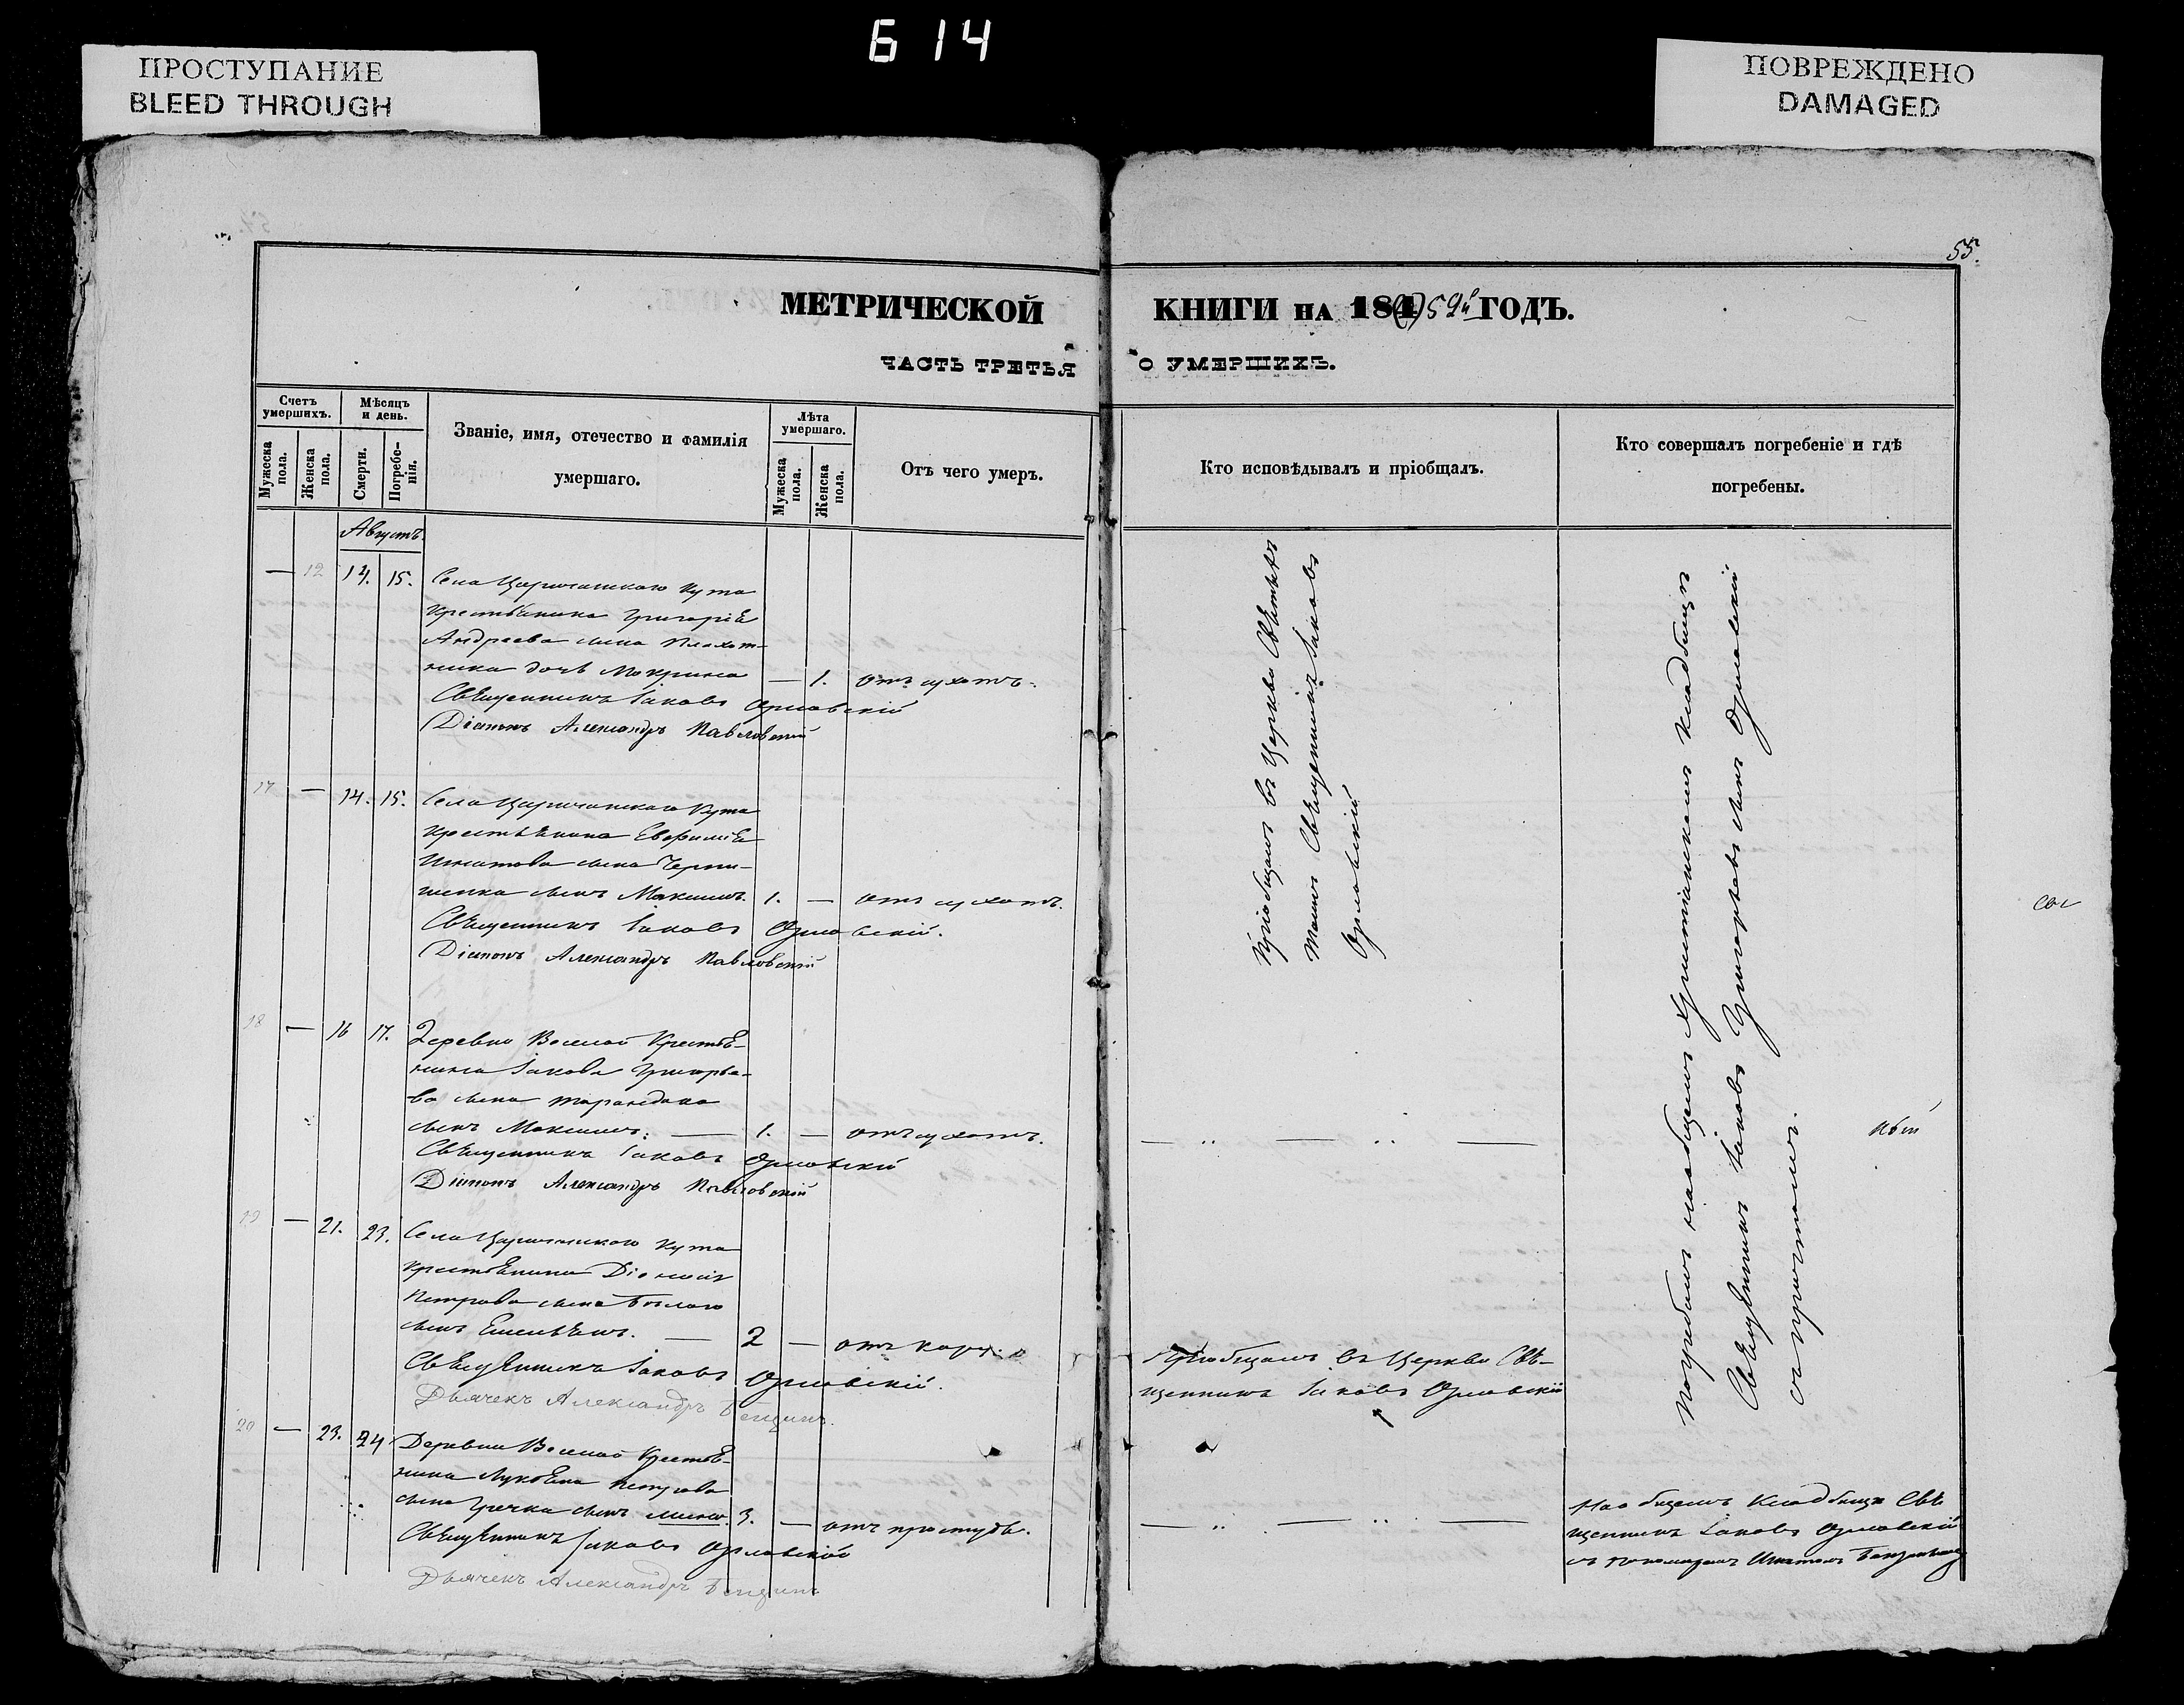 Б 14
ПРОСТУПАНИЕ
BLEED THROUGH
ПОВРЕЖДЕНО
DAMAGED
55.
МЕТРИЧЕСКОЙ КНИГИ НА 184(4)52й ГОДЪ.
ЧАСТЬ ТРЕТЬЯ О УМЕРШИХЪ.
Счетъ умершихъ.
Мужеска пола.
Женска пола.
Мѣсяцъ и день.
Смерти.
Погребенія.
Званіе, имя, отечество и фамилія
умершаго.
Лѣта умершаго.
Мужеска пола.
Женска пола.
Отъ чего умеръ.
Кто исповѣдывалъ и пріобщалъ.
Кто совершалъ погребеніе и гдѣ
погребены.
Августъ.
— 12 14. 15. Села Царичанскаго Кута
крестьянина Григорія
Андреева сына Плахот-
ника дочь Мокрина — 1. отъ сухотъ.
Священникъ Іаковъ Орловскій
Діаконъ Александръ Павловскій
17 — 14. 15. Села Царичанскаго Кута
крестьянина Евфимія
Игнатова сына
сынъ Максимъ. 1. — отъ сухотъ.
Священникъ Іаковъ Орловскій.
Діаконъ Александръ Павловскій
18 — 16 17. Деревни Веселой Крестья-
нина Іакова Григорье-
ва сына
сынъ Максимъ. — 1. — отъ сухотъ.
Священникъ Іаковъ Орловскій
Діаконъ Александръ Павловскій
19 — 21. 23. Села Царичанскаго Кута
крестьянина Діонисія
Петрова сына Бѣлаго
сынъ Емельянъ. — 2 — отъ
Священникъ Іаковъ Орловскій.
Дьячекъ Александръ
20 — 23. 24 Деревни Веселой Крестья-
нина Лукьяна Петрова
сына Гречка сынъ 3. — отъ простуды.
Священникъ Іаковъ Орловскій
Дьячекъ Александръ
Пріобщалъ въ Церкви Святыхъ
Таинъ Священникъ Іаковъ
Орловскій
— " — " —
Пріобщалъ въ Церкви Свя-
щенникъ Іаковъ Орловскій
— " — " —
Погребалъ на общемъ Христіанскомъ Кладбищѣ
Священникъ Іаковъ Григорьевъ сынъ Орловскій
съ причтомъ.
На общемъ Кладбищѣ Свя
щенникъ Іаковъ Орловскій
съ пономаремъ Игнатомъ